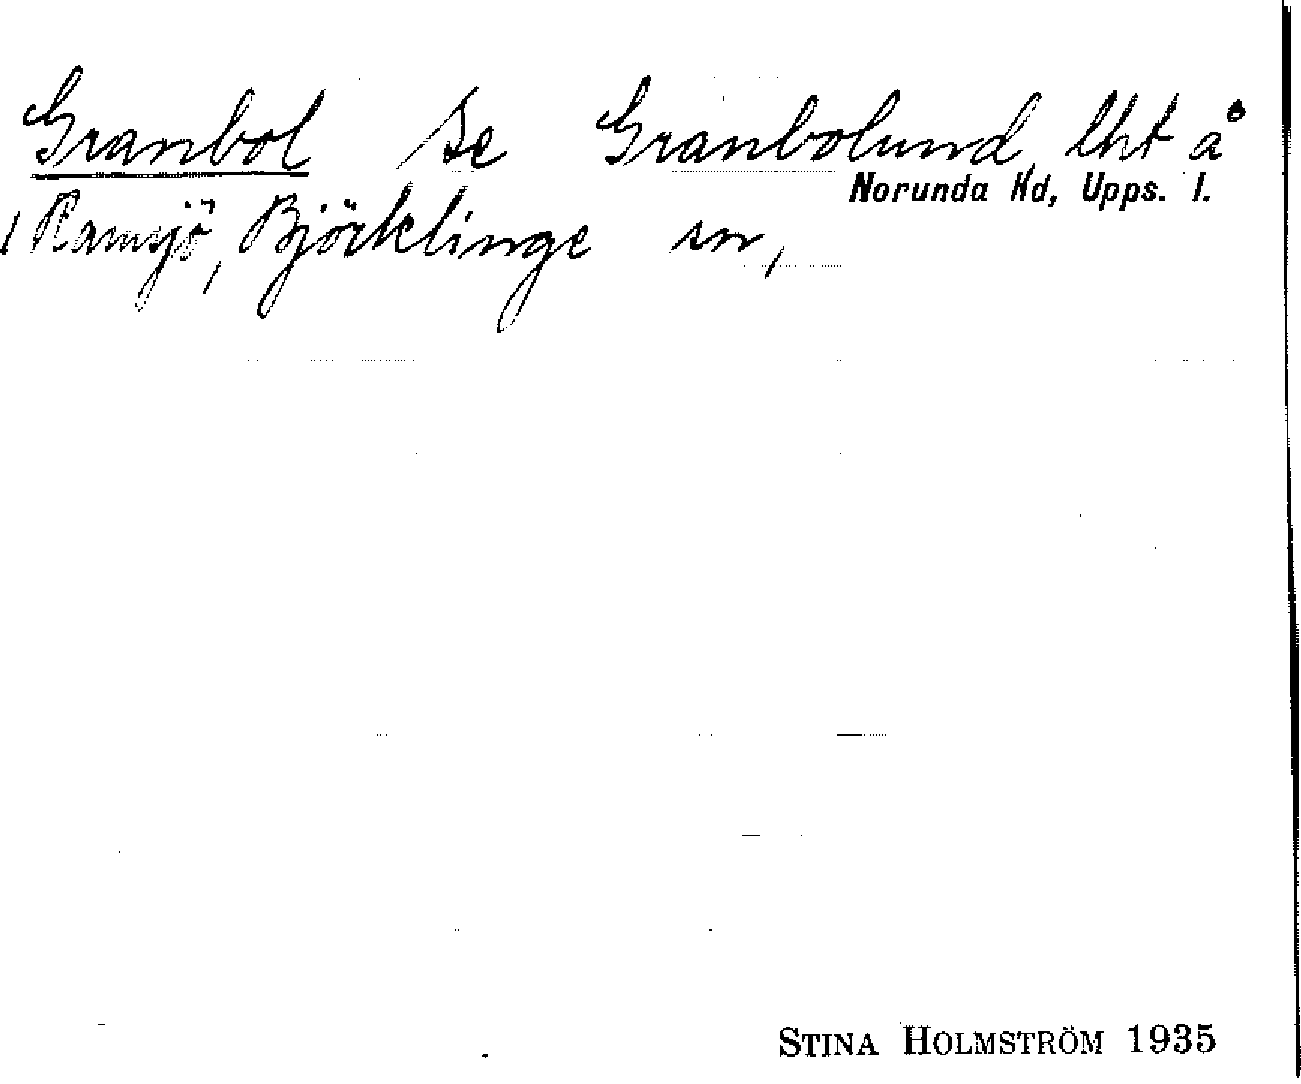 Granbol se Granbolund, lht å
Norunda Hd, Upps. l.
/ Ramsjö, Björklinge sn,
STINA HOLMSTRÖM 1935